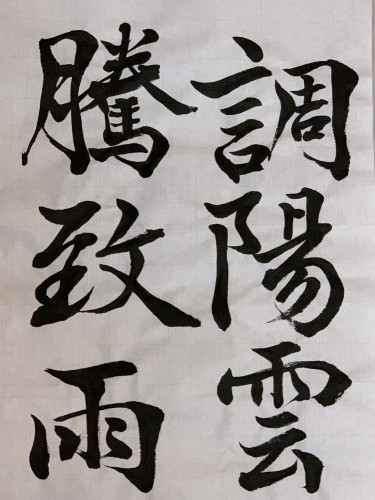 調陽雲
騰致雨